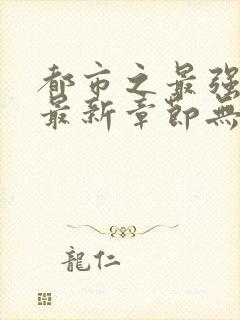 都市之最强
最新章節無
龍仁